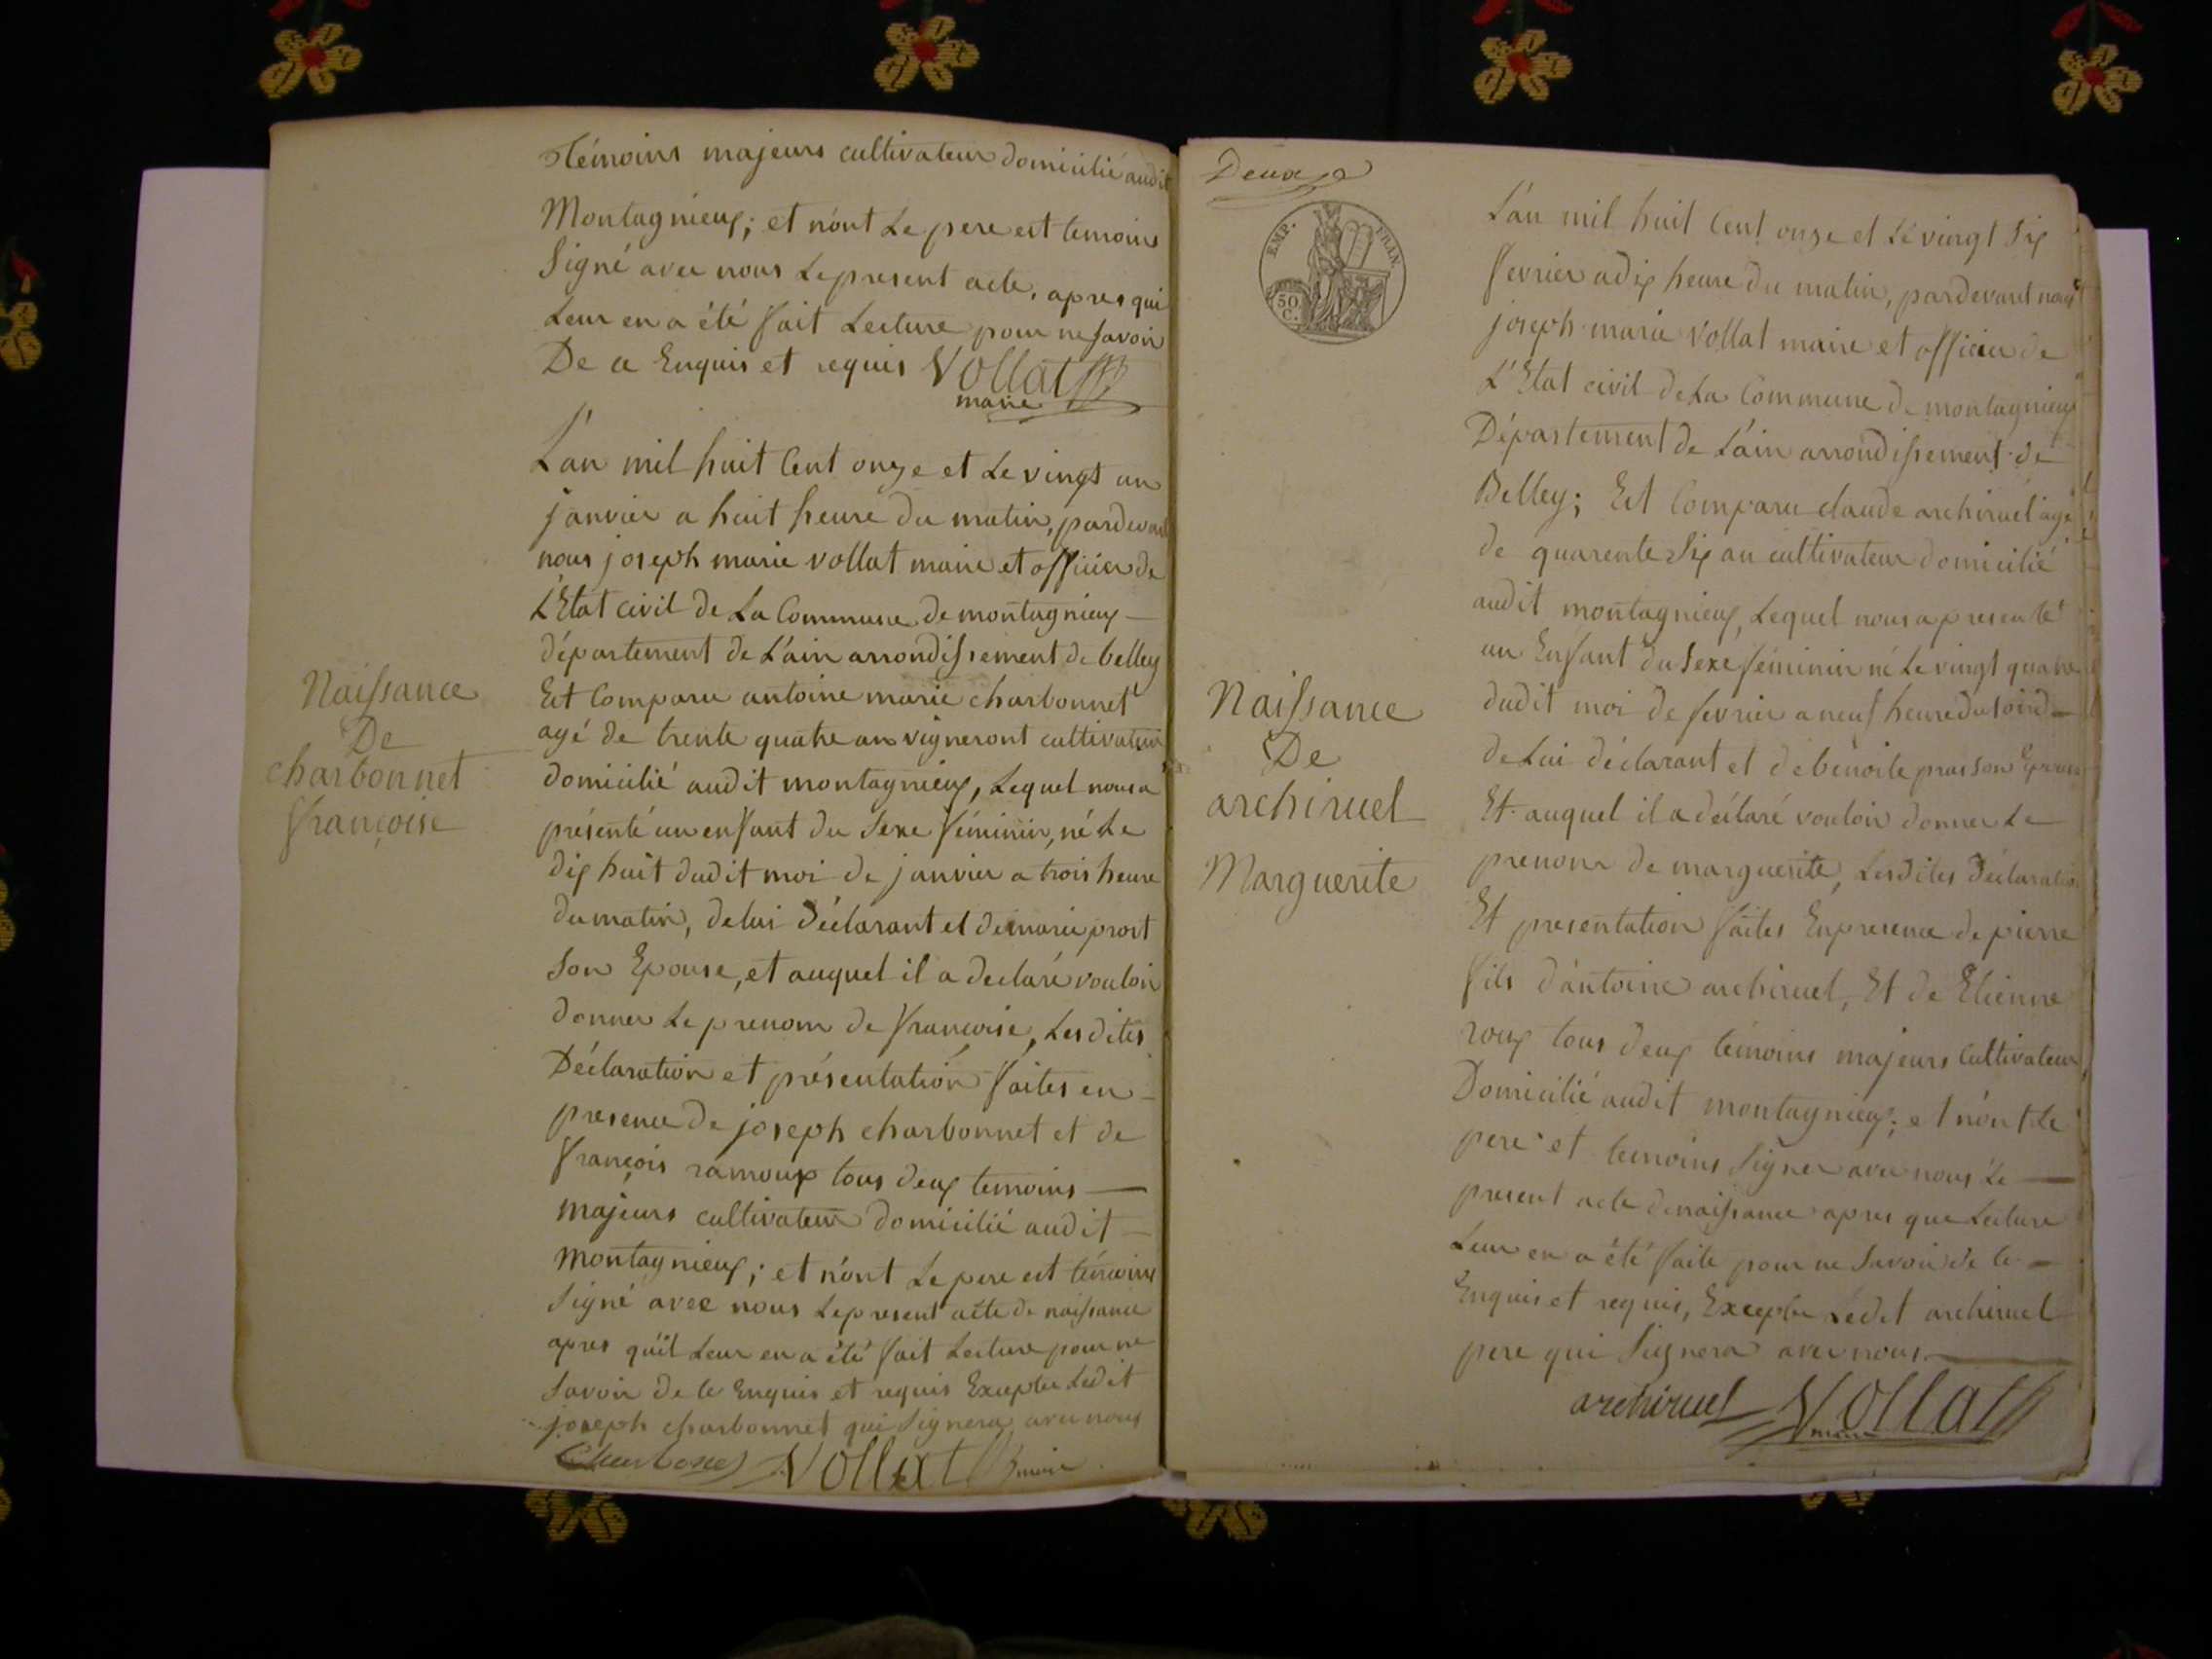 témoins majeurs cultivateur domicilié audit
Montagnieux; et n'ont Le pere et temoins
Signé avec nous Le present acte, apres qui
Leur en a été fait Lecture pour ne savoir
De ce Enquis et requis Vollat
maire
L'an mil huit Cent onze et Le vingt un
janvier a huit heure du matin, pardevant
nous joseph marie vollat maire et officier de
L'Etat civil de La Commune de montagnieux
département de L'ain arrondissement de belley
Est Comparu antoine marie charbonnet
agé de trente quatre ans vigneront cultivateur
domicilié audit montagnieux, Lequel nous a
présenté un enfant du Sexe féminin, né Le
dix huit dudit moi de janvier a trois heure
du matin, de lui Déclarant et de marie prost
Son Epouse, et auquel il a declaré vouloir
donner Le prenom de françoise, Lesdites
Déclaration et présentation faites en
presence de joseph charbonnet et de
françois ramoux tous deux temoins
majeurs cultivateur domicilié audit
montagnieux; et n'ont Le pere et témoins
Signé avec nous Le present acte de naissance
apres qu'il Leur en a été fait Lecture pour ne
Savoir de ce Enquis et requis Excepter Ledit
joseph charbonnet qui Signera avec nous
Charbonnet Vollat maire
Naissance
De
charbonnet
françoise
Deux
EMP. FRAN.
50
C.
L'an mil huit Cent onze et Le vingt Six
fevrier a dix heure du matin, pardevant nous
joseph marie vollat maire et officier de
L'Etat civil de La Commune de montagnieux
Département de L'ain arrondissement de
Belley; Est Comparu claude archiruel agé
de quarente Six an cultivateur domicilié
audit montagnieux, Lequel nous a presenté
un Enfant du Sexe féminin né Le vingt quatre
dudit moi de fevrier a neuf heure du soird
de Lui déclarant et de benoite pras son Epouse
Et auquel il a déclaré vouloir donner Le
prenom de marguerite, Lesdites Déclaration
Et presentation faites En presence de pierre
fils d'antoine archiruel, Et de Etienne
roux tous deux témoins majeurs Cultivateur
Domicilié audit montagnieux; et n'ont Le
pere et temoins Signer avec nous Le
present acte de naissance apres que Lecture
Leur en a été faite pour ne Savoir de ce
Enquis et requis, Excepter Ledit archiruel
pere qui Signera avec nous
archiruel Vollat
maire
Naissance
De
archiruel
Marguerite